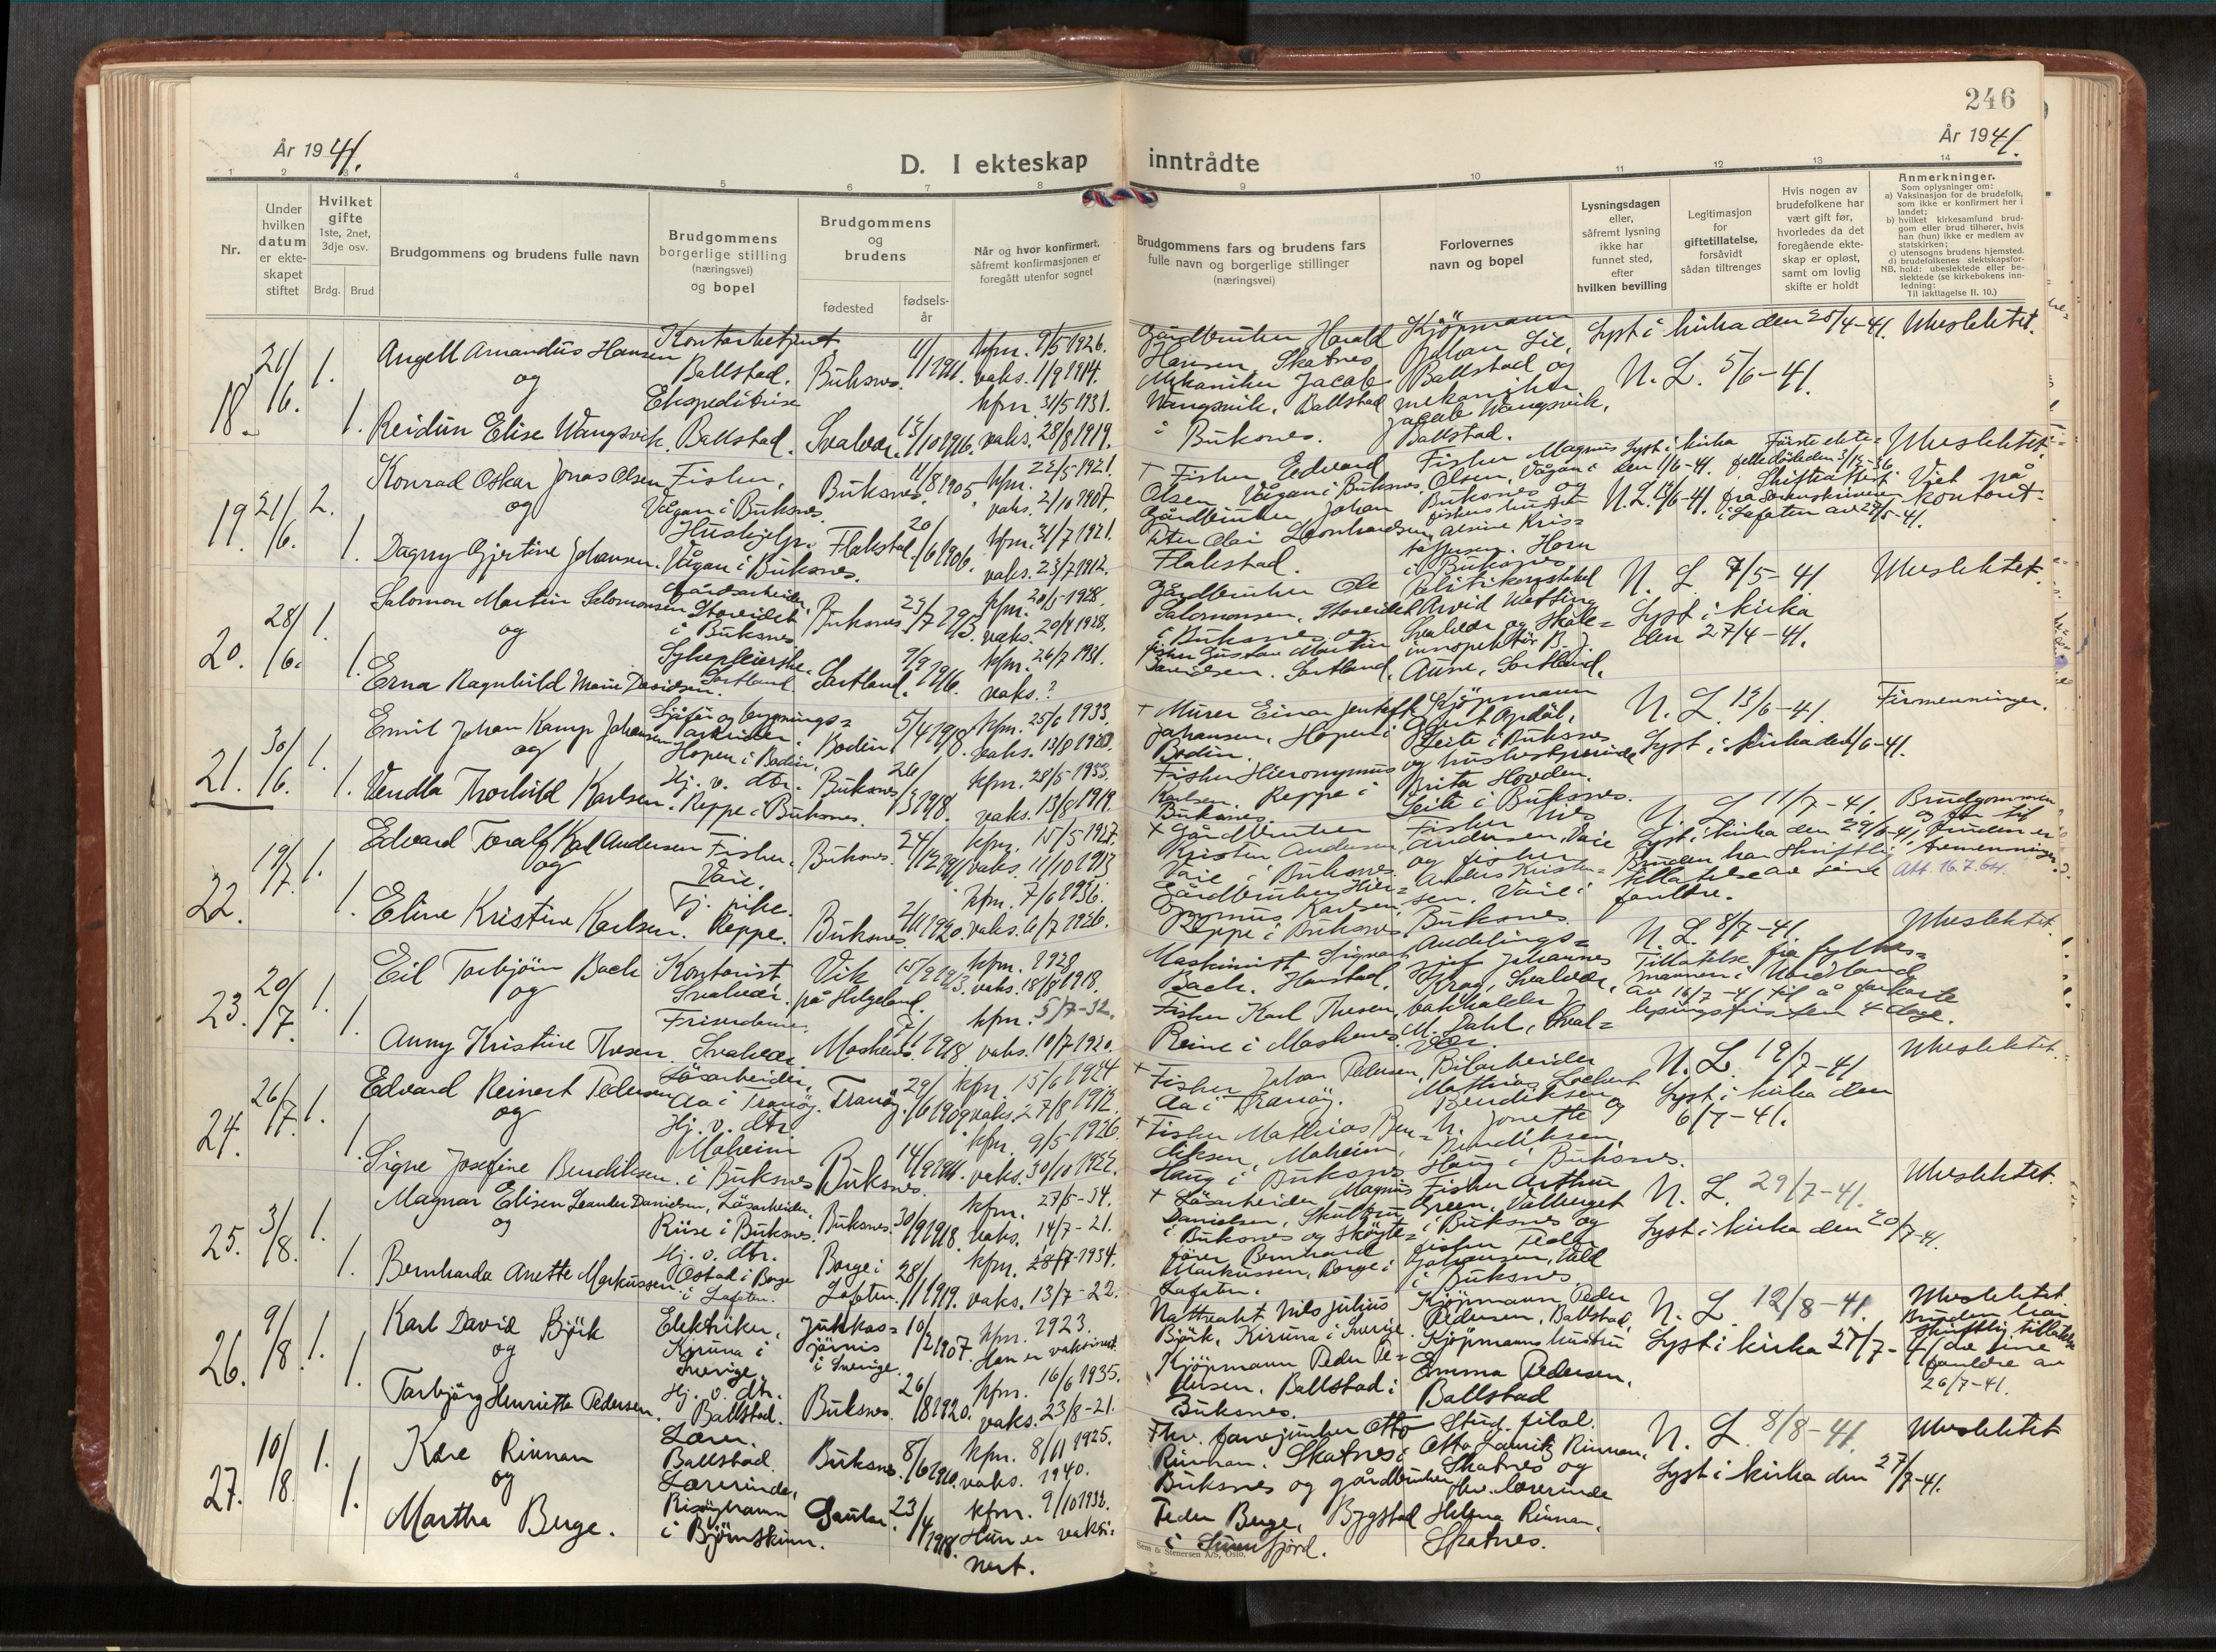 246
År 1941.
År 1941.
D. I ekteskap inntrådte
1 2 3 4 5 6 7 8 9 10 11 12 13 14
Nr.
Under hvilken datum er ekteskapet stiftet
Hvilket gifte 1ste, 2net, 3dje osv.
Brdg. Brud
Brudgommens og brudens fulle navn
Brudgommens borgerlige stilling (næringsvei) og bopel
Brudgommens og brudens
fødested
fødsels-år
Når og hvor konfirmert, såfremt konfirmasjonen er foregått utenfor sognet
Brudgommens fars og brudens fars fulle navn og borgerlige stillinger (næringsvei)
Forlovernes navn og bopel
Lysningsdagen eller, såfremt lysning ikke har funnet sted, efter hvilken bevilling
Legitimasjon for giftetillatelse, forsåvidt sådan tiltrenges
Hvis nogen av brudefolkene har vært gift før, hvorledes da det foregående ekteskap er opløst, samt om lovlig skifte er holdt
Anmerkninger.
Som oplysninger om:
a) Vaksinasjon for de brudefolk, som ikke er konfirmert her i landet;
b) hvilket kirkesamfund brudgom eller brud tilhører, hvis han (hun) ikke er medlem av statskirken;
c) utensogns brudens hjemsted.
d) brudefolkenes slektskapsforhold: ubeslektede eller beslektede (se kirkebokens innledning:
NB.
Til iakttagelse II. 10.)
18. 21/6. 1. Angell Amandus Hansen Kontorbetjent Ballstad. Buksnes. 11/1 1911. kfm. 9/5 1926. vaks. 1/9 1914.
og
1. Reidun Elise Wangsvik. Ekspeditrise Ballstad. Svolvær. 13/10 1916. kfm. 31/5 1931. vaks. 28/8 1919.
Gårdbruker Harald Hansen Skotnes
Mekaniker Jacob Wangsvik, Ballstad i Buksnes.
Kjöpmann Johan Lie, Ballstad og mekaniker Jacob Wangsvik, Ballstad.
Lyst i kirka den 20/4-41. N. L. 5/6-41.
Ubeslektet.
19. 21/6. 2. Konrad Oskar Jonas Olsen Fisker, Vågan i Buksnes. Buksnes. 11/8 1905. kfm. 22/5 1921. vaks. 2/10 1907.
og
1. Dagny Gjertine Johansen. Hushjelp. Vågan i Buksnes. Flakstad. 20/6 1906. kfm. 31/7 1921. vaks. 23/7 1912.
+ Fisker Edvard Olsen Vågan i Buksnes.
Gårdbruker Johan Peter Olai Leonhardsen Flakstad.
Fisker Magnus Olsen, Vågan i Buksnes og fiskers hustru Alvine Kristoffersen. Horn i Buksnes.
Lyst i kirka den 1/6-41. N. L. 13/6-41.
Förste ektefelle döde den 3/12-36. Skifteattest fra Sorenskriveren i Lofoten av 29/5-41.
Ubeslektet. Viet på kontoret.
20. 28/6. 1. Salomon Martin Salomonsen Gårdsarbeider, Storeidet i Buksnes. Buksnes. 23/7 1913. kfm. 20/5 1928. vaks. 20/8 1928.
og
1. Erna Ragnhild Marie Davidsen. Sykepleierske. Sortland. Sortland. 9/9 1916. kfm. 26/7 1931. vaks. ?
Gårdbruker Ole Salomonsen, Storeidet i Buksnes og
fisker Gustav Martin Davidsen. Sortland.
Politikonstabel Arvid Svolvær og Skoleinspektör B. J. Aune, Sortland.
N. L. 7/5-41. Lyst i kirka den 27/4-41.
Ubeslektet.
21. 30/6. 1. Emil Johan Kamp Johansen Sjåför og bygningsarbeider. Hopen i Bodin. Bodin. 5/4 1918. kfm. 25/6 1933. vaks. 13/8 1920.
og
1. Vendla Thorhild Karlsen. Hj. v. dtr. Reppe i Buksnes. Buksnes. 26/3 1918. kfm. 28/5 1933. vaks. 13/8 1919.
+ Murer Einar Johansen, Hopen i Bodin.
Fisker Hieronymus Karlsen. Reppe i Buksnes.
Kjöpmann Opdöl, Leite i Buksnes og husbestyrerinde Brita Hovden. Leite i Buksnes.
N. L. 13/6-41. Lyst i kirka den 1/6-41.
Firmenninger.
22. 19/7. 1. Edvard Toralf Karl Andersen Fisker. Vaie. Buksnes. 24/12 1911. kfm. 15/5 1927. vaks. 11/10 1913
og
1. Eline Kristine Karlsen. Tj. pike. Reppe. Buksnes. 2/11 1920. kfm. 7/6 1936. vaks. 6/7 1926.
+ Gårdbruker Kristen Andersen, Vaie i Buksnes. og
Gårdbruker Hieronymus Karlsen. Reppe i Buksnes.
Fisker Nils Andersen, Vaie og fisker Anders Kristensen. Vaie i Buksnes.
N. L. 11/7-41. Lyst i kirka den 29/6-41. Bruden har skriftlig tillatelse av sine foreldre.
Brudgommen og far til bruden er tremenninger. Att. 16.7.64.
23. 20/7. 1. Eil Torbjörn Bach Kontorist Svolvær. Vik på Helgeland. 15/9 1913. kfm. 1928. vaks. 18/8 1918.
og
1. Anny Kristine Thesen. Friserdame. Svolvær. Moskenes. 1918. kfm. 5/7-32. vaks. 10/7 1920.
Maskinist Sigvart Bach. Harstad.
Fisker Karl Thesen, Reine i Moskenes.
Avdelingssjef Johannes Krag, Svolvær, bokholder J. M. Dahl, Svolvær.
N. L. 8/7-41. Tillatelse fra fylkesmannen i Nordland av 16/7-41 til å forkorte lysingsfristen 4 dage.
Ubeslektet.
24. 26/7. 1. Edvard Reinert Pedersen Lösarbeider, Aa i Tranöy. Tranöy. 29/6 1909 kfm. 15/6 1924 vaks. 27/8 1912.
og
1. Signe Josefine Bendiksen. Hj. v. dtr. Moheim i Buksnes. Buksnes. 14/9 1911. kfm. 9/5 1926. vaks. 30/10 1922.
+ Fisker Johan Pedersen, Aa i Tranöy.
+ Fisker Mathias Bendiksen, Moheim, Haug i Buksnes.
Bilarbeider Matthias Lockert Bendiksen og Jonette Bendiksen, Haug i Buksnes.
N. L. 19/7-41 Lyst i kirka den 6/7-41.
Ubeslektet.
25. 3/8. 1. Magnar Elisen Leander Danielsen, Lösarbeider, Riise i Buksnes. Buksnes. 30/9 1918. kfm. 27/5-34. vaks. 14/7-21.
og
1. Bernharda Anette Markussen. Hj. v. dtr. Östad i Borge i Lofoten. Borge i Lofoten. 28/11 1919. kfm. 28/7-1934. vaks. 13/7-22.
+ Lösarbeider Magnus Danielsen, i Buksnes og Sköyteförer Bernhard Markussen, Borge i Lofoten.
Fisker Arthur Green, i Buksnes og fisker Peder Johansen, Vold i Buksnes.
N. L. 29/7-41. Lyst i kirka den 20/7-41.
Ubeslektet.
26. 9/8. 1. Karl David Björk Elektriker, Kiruna i Sverige. Jukkasjärvis i Sverige. 10/2 1907 kfm. 1923. Han er vaksinert.
og
1. Torbjörg Henriette Pedersen. Hj. v. dtr. Ballstad. Buksnes. 26/8 1920. kfm. 16/6 1935. vaks. 23/8-21.
Nattvakt Nils Julius Björk, Kiruna i Sverige.
Kjöpmann Peder Pedersen. Ballstad i Buksnes.
Kjöpmann Peder Pedersen, Ballstad, Kjöpmanns hustru Emma Pedersen, Ballstad
N. L. 12/8-41. Lyst i kirka 27/7-41
Ubeslektet Bruden har skriftlig tillatelse av sine foreldre av 26/7-41.
27. 10/8. 1. Kåre Rinnan Lærer. Ballstad. Buksnes. 8/6 1910. kfm. 8/11 1925. vaks. 1940.
og
1. Martha Berge. Lærerinde, Risöyhamn i Björnskinn. Gaular. 23/4 1918. kfm. 9/10 1932. Hun er vaksinert.
Hv. Otto Rinnan. Skotnes i Buksnes og gårdbruker Peder Berge, Bygstad i Sunnfjord.
Stud. filol. Otto Lauritz Rinnan, Skotnes og Hv. lærerinde Helma Rinnan. Skotnes.
N. L. 8/8-41. Lyst i kirka den 27/7-41.
Ubeslektet
Sem & Stenersen A/S, Oslo.